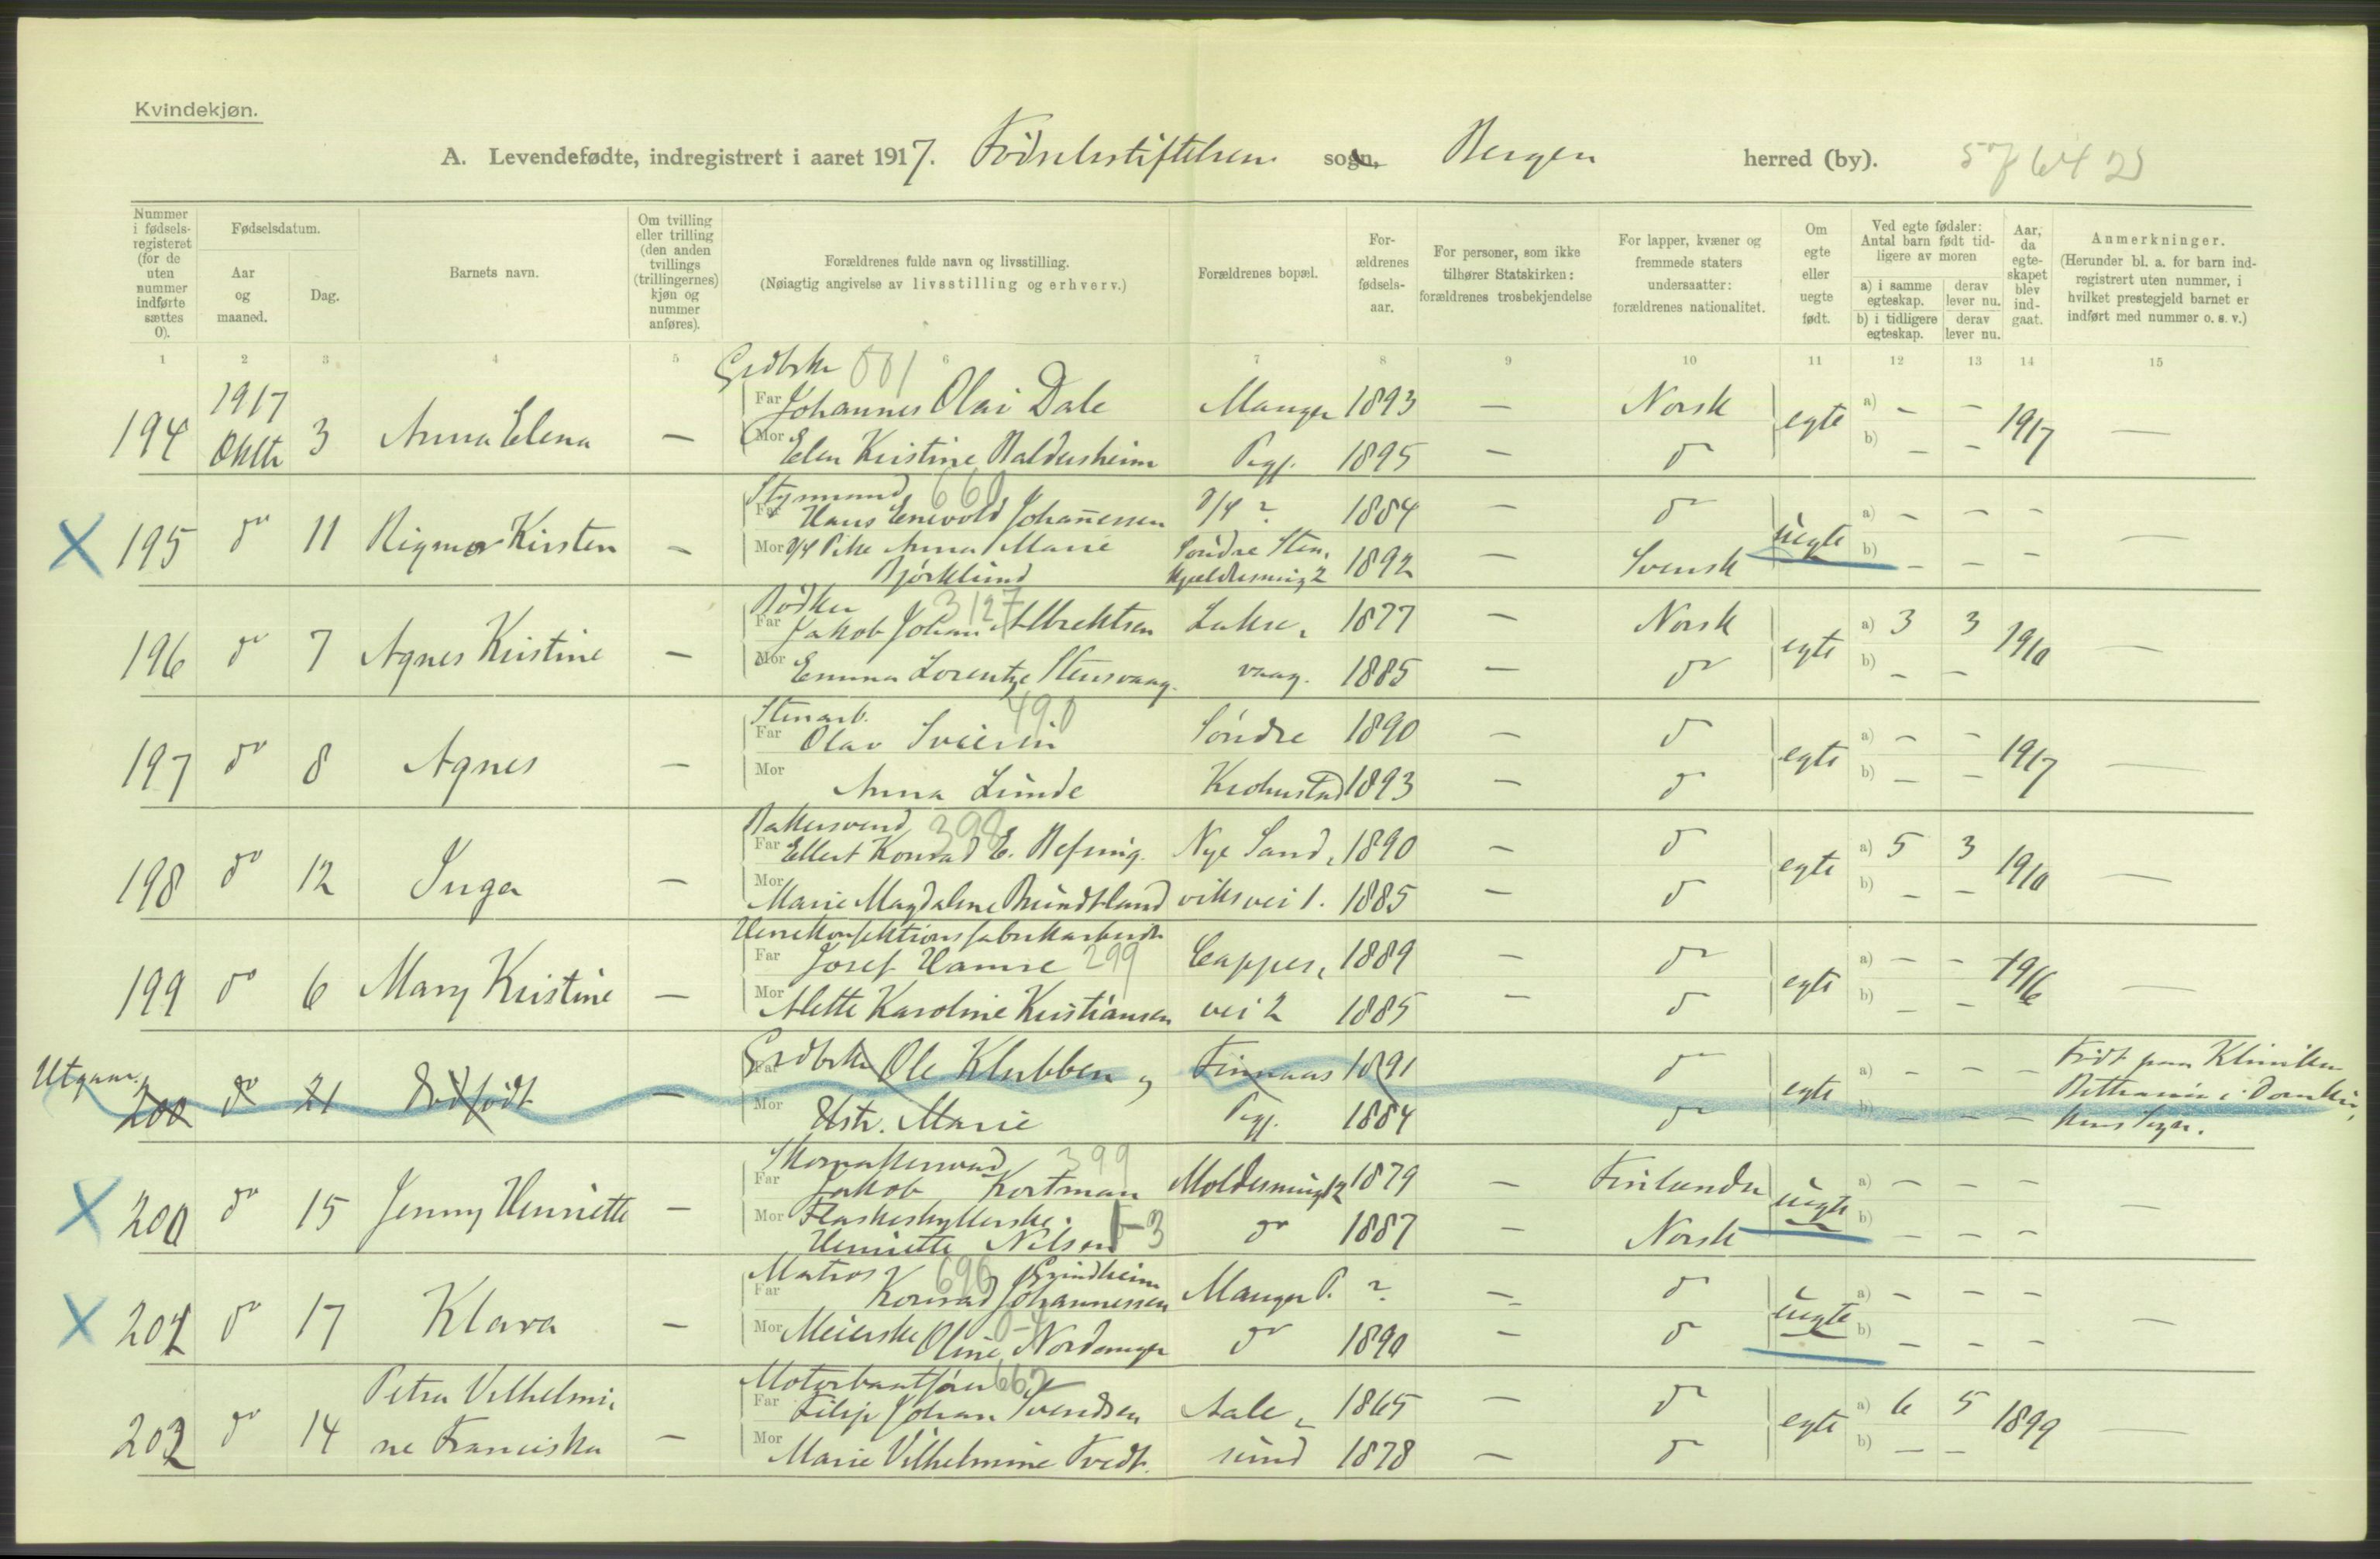 Kvindekjøn.
A. Levendefødte, indregistrert i aaret 1917. Fødselsstiftelsen sogn, Bergen herred (by). 57642
Nummer i fødselsregisteret (for de uten nummer indførte sættes 0).
Fødselsdatum.
Aar og maaned.
Dag.
Barnets navn.
Om tvilling eller trilling (den anden tvillings (trillingernes) kjøn og nummer anføres).
Forældrenes fulde navn og livsstilling.
(Nøiagtig angivelse av livsstilling og erhverv.)
Forældrenes bopæl.
Forældrenes fødselsaar.
For personer, som ikke tilhører Statskirken: forældrenes trosbekjendelse
For lapper, kvæner og fremmede staters undersaatter: forældrenes nationalitet.
Om egte eller uegte født.
Ved egte fødsler: Antal barn født tidligere av moren
a) i samme egteskap. derav lever nu.
b) i tidligere egteskap. derav lever nu.
Aar, da egteskapet blev indgaat.
Anmerkninger.
(Herunder bl. a. for barn indregistrert uten nummer, i hvilket prestegjeld barnet er indført med nummer o. s. v.)
1 2 3 4 5 6 7 8 9 10 11 12 13 14 15
Grdbrkr
1917 Far Johannes Olai Dale Manger 1893 — Norsk a) — —
194 Oktbr 3 Anna Elena — egte 1917 —
Mor Elen Kristine Baldersheim Pgj. 1895 — do b) — —
Styrmand 660
Far Hans Enevold Johannessen o/4 ? 1884 do a) — — —
X 195 do 11 Rigmor Kirsten — uegte —
Mor o/4 Pike Anna Marie Søndre Sten- 1892 — Svensk b) — — —
Bjørklund kjeldersmug 2
Bødker 3127
Far Jakob Johan Albrektsen Lakse- 1877 — Norsk a) 3 3
196 do 7 Agnes Kristine — egte 1910 —
Mor Emma Lorentze Stensvaag vaag. 1885 — do b) — —
Stenarb. 490
Far Olav Sveisein Søndre 1890 — do a) — —
197 do 8 Agnes — egte 1917 —
Mor Anna Lunde Krohnstad 1893 — do b) — —
Bakersvend 398
Far Ellert Konrad E. Refsnig. Nye Sand- 1890 — do a) 5 3
198 do 12 Inga — egte 1910 —
Mor Marie Magdalene Brundtland viksvei 1. 1885 — do b) — —
Herrekonfektionsfabrikarbeider
Far Josef Hamre 299 Cappes- 1889 — do a) — —
199 do 6 Mary Kristine — egte 1916 —
Mor Alette Karoline Kristiansen vei 2 1885 — do b) — —
Utgaar. Grdbrkr Ole Klubben og Finnaas 1891 do a) — — — Født paa Kliniken
200 do 21 Dødfødt — egte Bethania i Domkir-
Mor Hstr. Marie Pgj. 1884 do b) — — — kens sogn.
Skomakersvend 399
Far Jakob Kortman Moldesmug 12 1879 — Finlender a) — — —
X 200 do 15 Jenny Henriette — uegte —
Mor Flaskeskyllerske. do 1887 — Norsk b) — — —
Henriette Nilsen
Matros 696 Grindheim
Far Konrad Johannessen Manger P. ? — do a) — — —
X 201 do 17 Klara — uegte —
Mor Meierske Oline Nordanger do 1890 — do b) — — —
Motorbaatfører 662
Petra Vilhelmi- Far Filip Johan Svendsen Aale- 1865 — do a) 6 5
202 do 14 ne Franciska — egte 1899 —
Mor Marie Vilhelmine Tvedt. sund 1878 — do b) — —